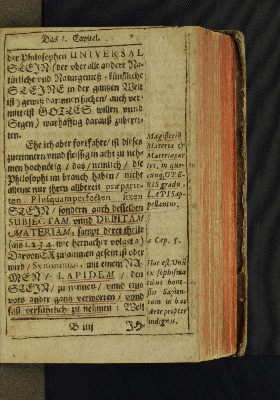 Das 1. Capitel.
der Philosophen UNIVERSAL
STEIN (der uber alle andere Na-
türliche vnd Naturgemeß-künstliche
STEINE in der gantzen Welt
ist) gewiß darinnen suchen / auch ver-
mittelst GOTTES willen vnnd
Segen) warhafftig darauß zuberei-
ten.
Ehe ich aber fortfahre / ist dieses
zuerinnern vnnd fleissig in acht zu neh-
men hochnötig / das / nemlich / die
Philosophi im brauch haben / nicht
alleine nur ihren allbereit præparir-
ten Plusquamperfecten fixen
STEIN / sondern auch desselben
SUBJECTAM vnnd DEBITAM
MATERIAM, sampt derer theile
(als 1.2.3.4. wie hernacher volget a)
Darvon ER zusammen gesetzt ist oder
wird / Synonymωs, mit einem NA-
MEN / LAPIDEM / den
STEIN / zu nennen / vnnd eins
vors ander gantz verworren / vnnd
fast verführlich zu nehmen: Weil
B iiij
Magisterij
Materia &
Materiæ par-
tes, in quo-
cunq; OPE-
RIS gradu,
LAPIS ap-
pellantur.
a Cap. 5.
Hac est Vna
ex
tibus
sis Sapien-
tum in hac
Arte propter
indignos.